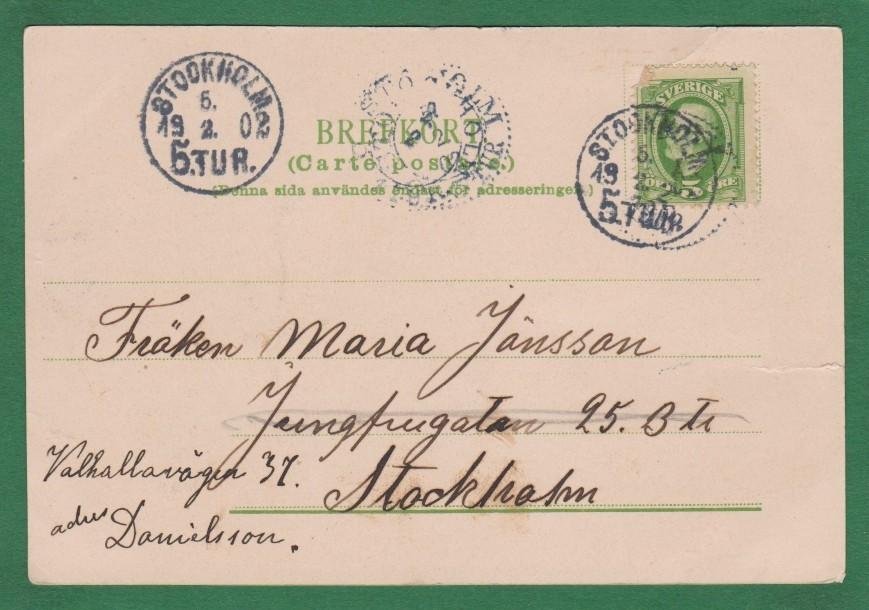 STOCKHOLM 2
5.
19 2. 02
5.TUR.
BREFKORT
(Carte postale.)
(Denna sida användes endast för adresseringen.)
SVERIGE
5 ÖRE
STOCKHOLM
5.
19 2.
5.TUR.
Fröken Maria Jönsson
Jungfrugatan 25. B tr
Stockholm
Valhallavägen 37.
adrs
Danielsson.